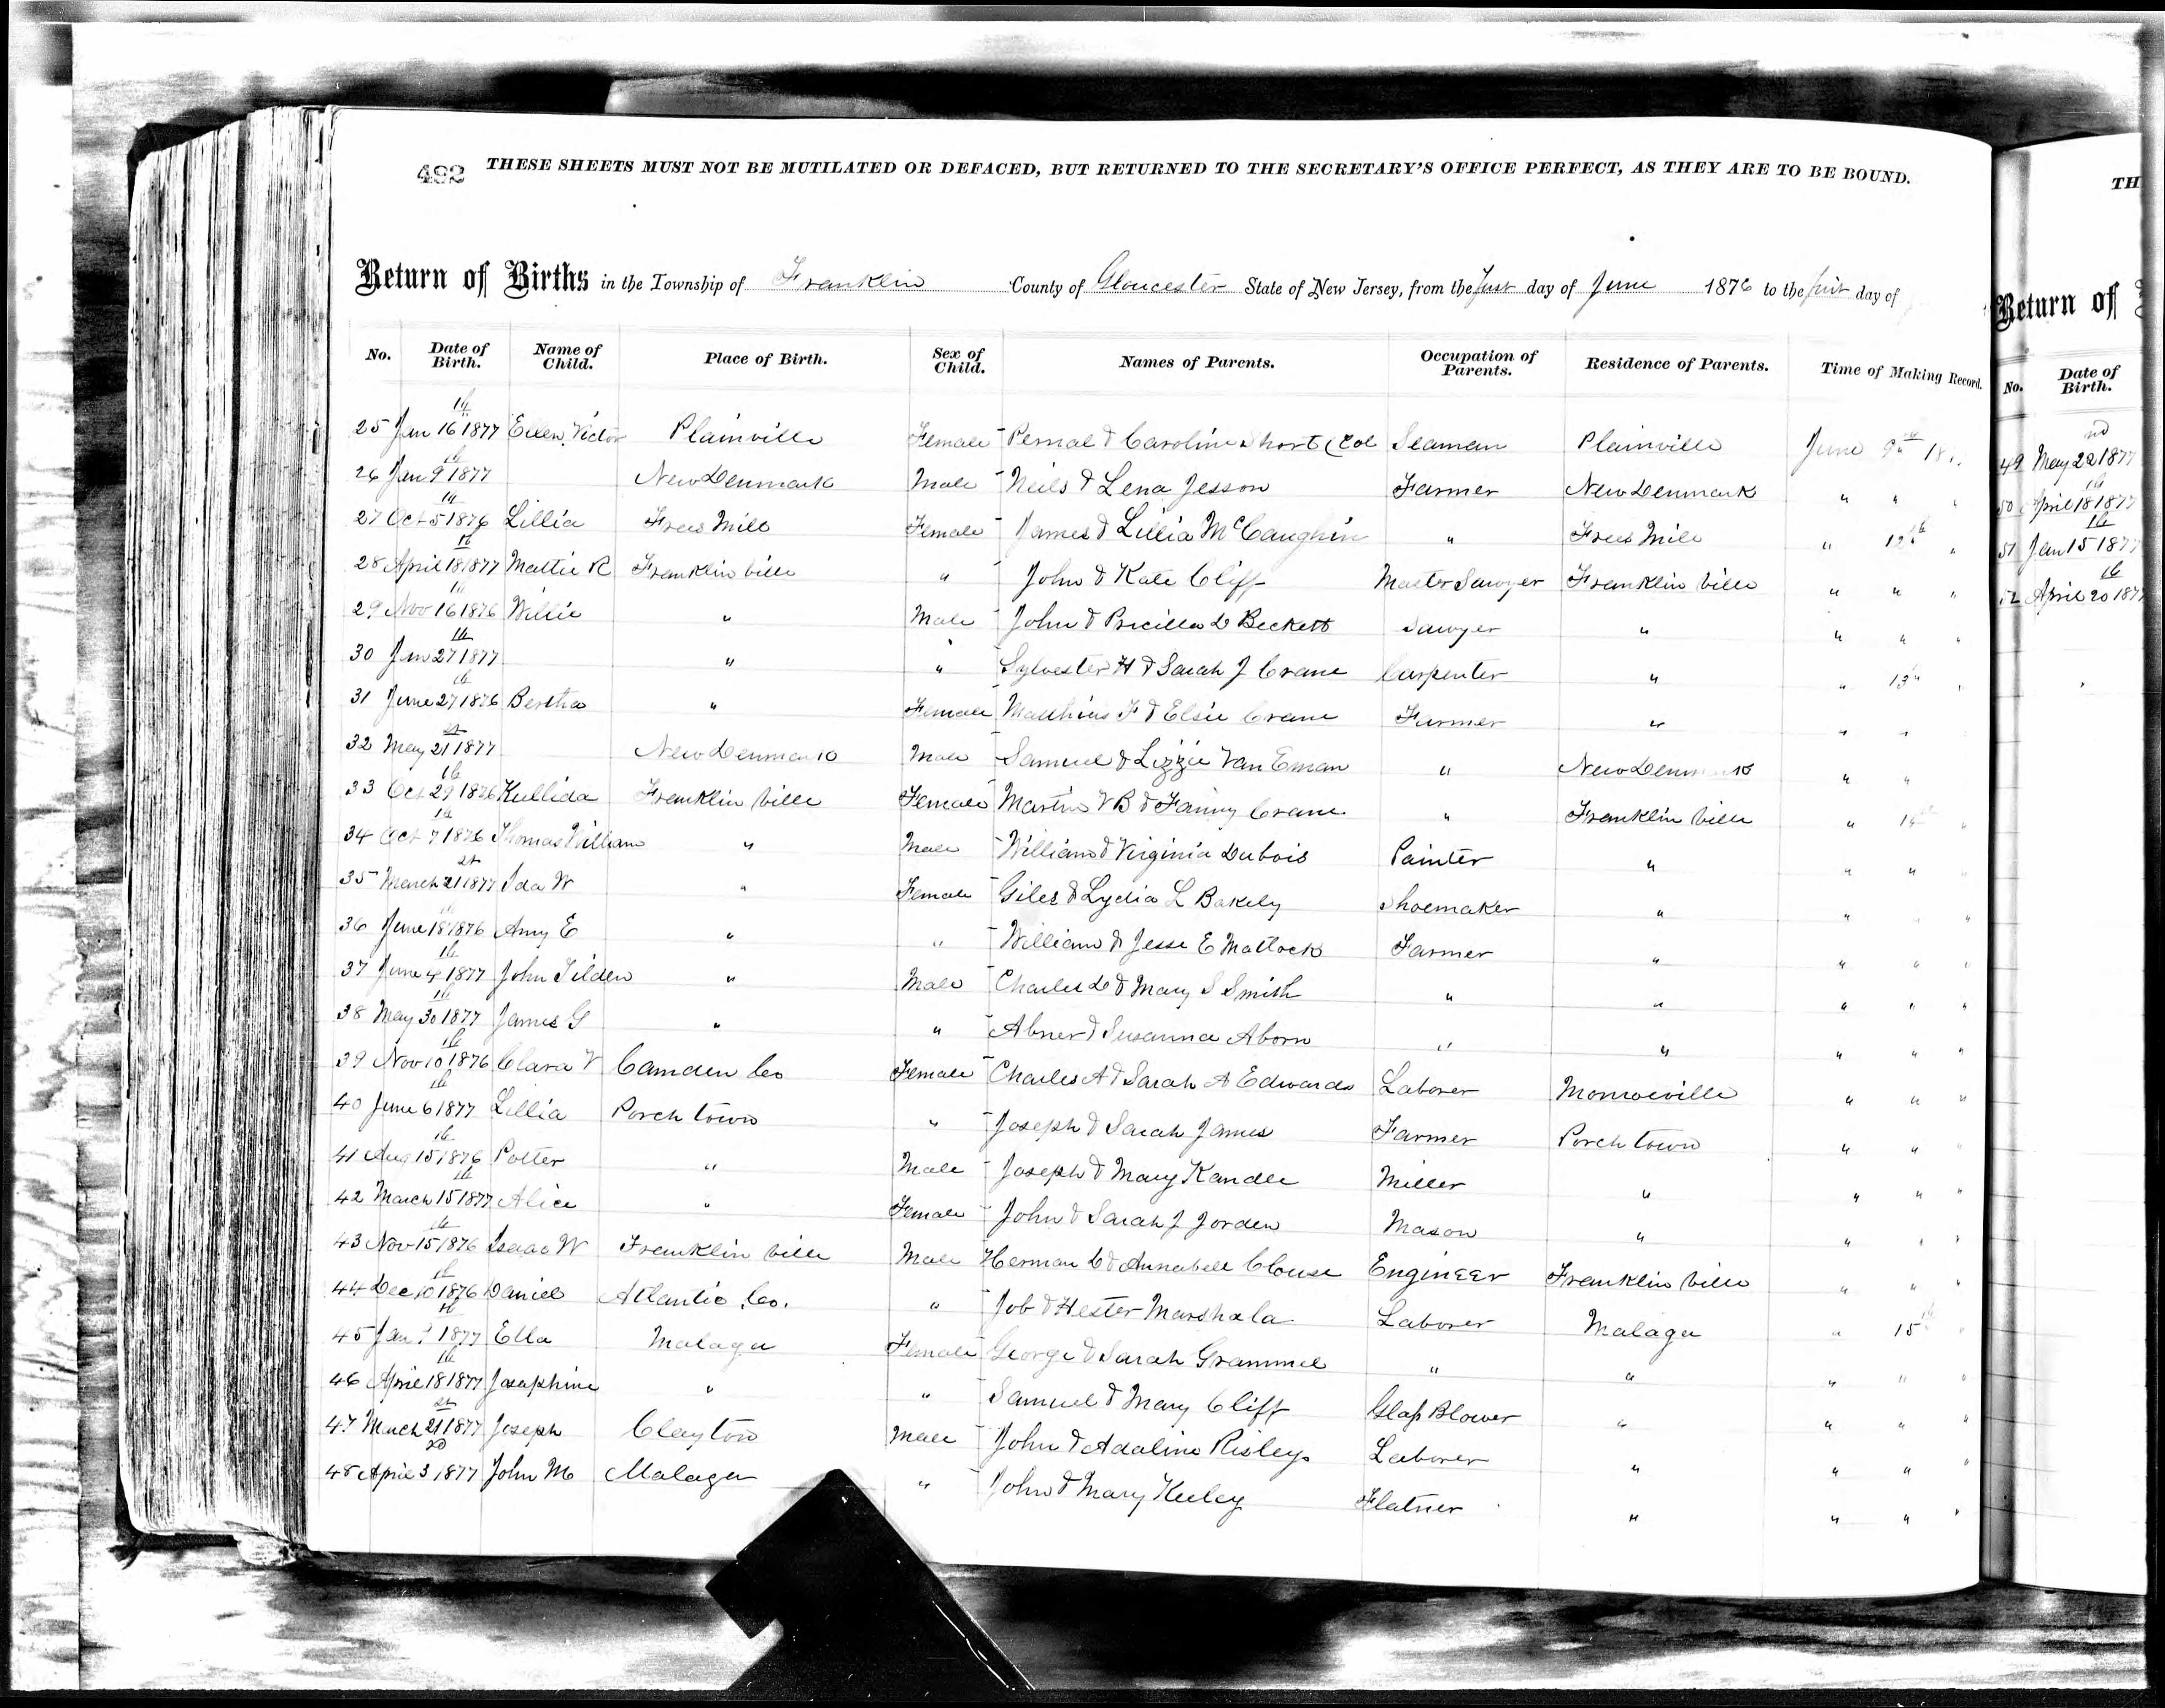 492 THESE SHEETS MUST NOT BE MUTILATED OR DEFACED, BUT RETURNED TO THE SECRETARY'S OFFICE PERFECT, AS THEY ARE TO BE BOUND.
Return of Births in the Township of Franklin County of Gloucester State of New Jersey, from the first day of June 1876 to the first day of
No. Date of Birth. Name of Child. Place of Birth. Sex of Child. Names of Parents. Occupation of Parents. Residence of Parents. Time of Making Record.
25 Jan 16th 1877 Ellen Victor Plainville Female Pernal & Caroline Short (Col Seaman Plainville June 9th 18
26 Jan 9th 1877 New Denmark Male Neils & Lena Jesson Farmer New Denmark " " "
27 Oct 5th 1876 Lillia Frees Mill Female James & Lillia McCaughin " Frees Mill " 12th "
28 April 18th 1877 Mattie R Franklinville " John & Kate Cliff Master Sawyer Franklinville " " "
29 Nov 16th 1876 Willie " Male John & Pricilla D Beckett Sawyer " " " "
30 Jan 27th 1877 " " Sylvester H & Sarah J Crane Carpenter " " 13th "
31 June 27th 1876 Bertha " Female Matthias F & Elsie Crane Farmer " " "
32 May 21st 1877 New Denmark Male Samuel & Lizzie Van Eman " New Denmark " "
33 Oct 29th 1876 Kullida Franklinville Female Martin V B & Fanny Crane " Franklinville " 14th "
34 Oct 7th 1876 Thomas William " Male William & Virginia Dubois Painter " " " "
35 March 21st 1877 Ida W " Female Giles & Lydia L Bakely Shoemaker " " " "
36 June 18th 1876 Amy E " " William & Jesse E Matlock Farmer " " " "
37 June 4th 1877 John Tilden " Male Charles D & Mary S Smith " " " " "
38 May 30th 1877 James G " " Abner & Susanna Aborn " " " " "
39 Nov 10th 1876 Clara V Camden Co Female Charles A & Sarah A Edwards Laborer Monroeville " " "
40 June 6th 1877 Lillia Porchtown " Joseph & Sarah James Farmer Porchtown " " "
41 Aug 15th 1876 Potter " Male Joseph & Mary Kandle Miller " " " "
42 March 15th 1877 Alice " Female John & Sarah J Jorden Mason " " " "
43 Nov 15th 1876 Isaac W Franklinville Male Herman D & Annabell Clouse Engineer Franklinville " " "
44 Dec 10th 1876 Daniel Atlantic Co. " Job & Hester Marshala Laborer Malaga " 15th "
45 Jan 1877 Ella Malaga Female George & Sarah Grammel " " " " "
46 April 18th 1877 Josephine " " Samuel & Mary Cliff Glass Blower " " " "
47 March 21st 1877 Joseph Clayton Male John & Adaline Risley Laborer " " " "
48 April 3rd 1877 John M Malaga " John & Mary Keeley Flatner " " " "
TH
Return of
No. Date of Birth.
49 May 22nd 1877
50 April 18th 1877
51 Jan 15th 1877
52 April 20th 1877